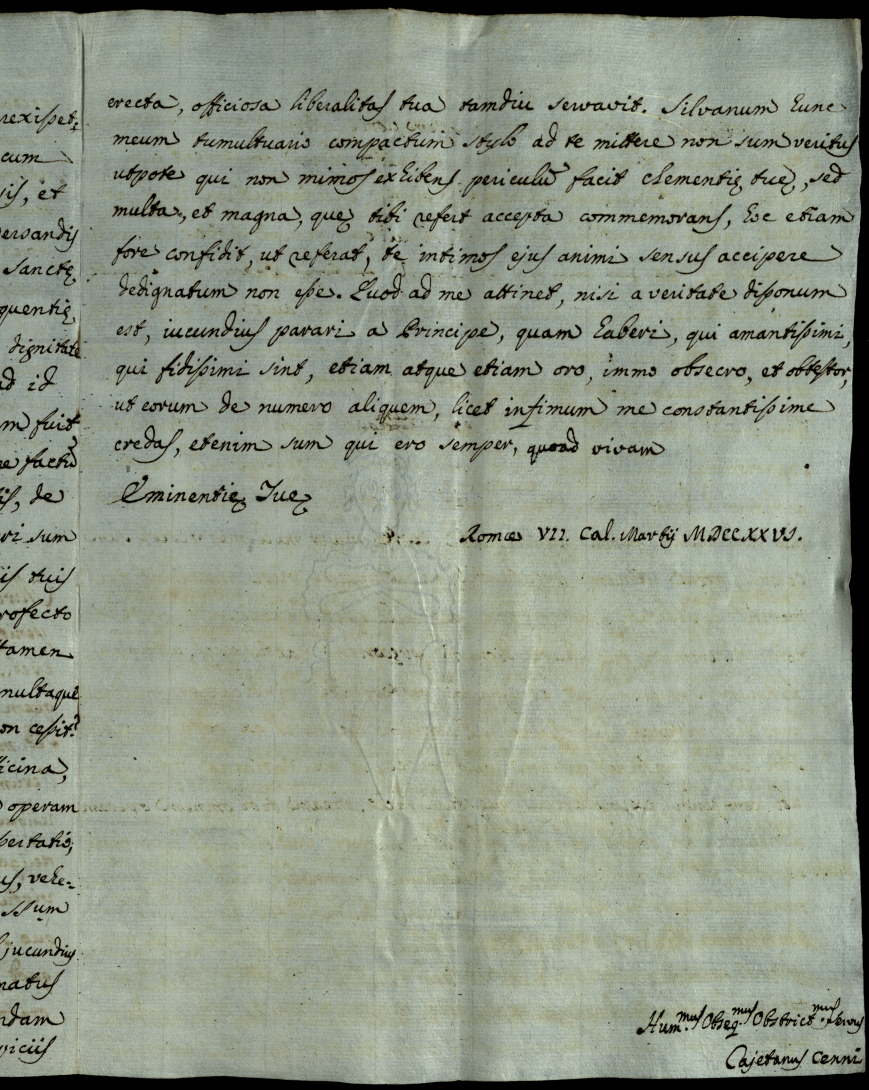 rexisset;
cum
sis, et
ersandis
Sanctę
quentię
dignitate
ad id
m fuit,
ne factũ
is, de
ri sum
iis tuis
rofecto
tamen
multaque
on cessit?
icina,
operam
bertatis,
us, vehe=
ssum
jucundius
natus
ndam
viciis
erecta, officiosa liberalitas tua tamdiu servavit. Silvanum hunc
meum tumultuario compactum stylo ad te mittere non sum veritus
utpote qui non mimos exhibens periculũ facit clementię tuę, sed
multa, et magna, quę tibi refert accepta commemorans, hoc etiam
fore confidit, ut referat, te intimos ejus animi sensus accipere
dedignatum non esse. Quod ad me attinet, nisi a veritate dissonum
est, iucundius parari a Principe, quam haberi, qui amantissimi,
qui fidissimi sint, etiam atque etiam oro, immo obsecro, et obtestor,
ut eorum de numero aliquem, licet infimum me constantissime
credas, etenim sum qui ero semper, quoad vivam
Eminentię Tuę
Romæ VII. Cal. Martij MDCCXXVI.
Hum.mus Obseq.mus Obstrict.mus Servus
Cajetanus Cenni